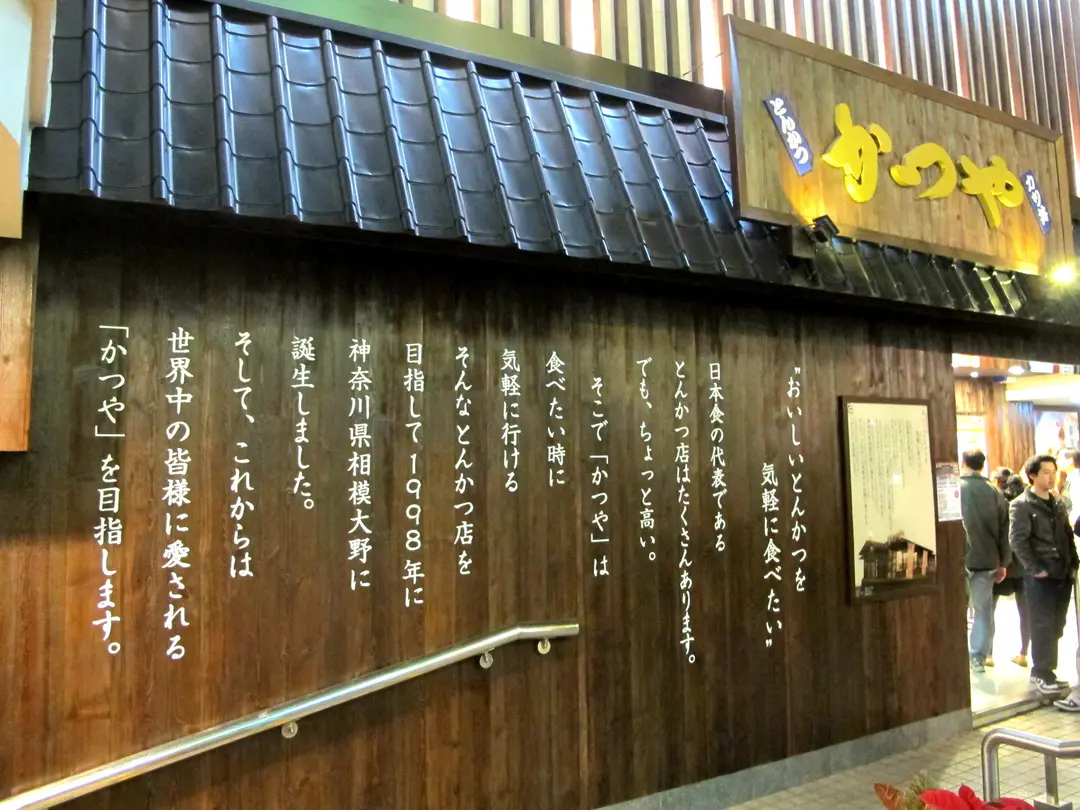 とんかつ
かつや
カツ丼
"おいしいとんかつを
気軽に食べたい"
日本食の代表である
とんかつ店はたくさんあります。
でも、ちょっと高い。
そこで「かつや」は
食べたい時に
気軽に行ける
そんなとんかつ店を
目指して1998年に
神奈川県相模大野に
誕生しました。
そして、これからは
世界中の皆様に愛される
「かつや」を目指します。